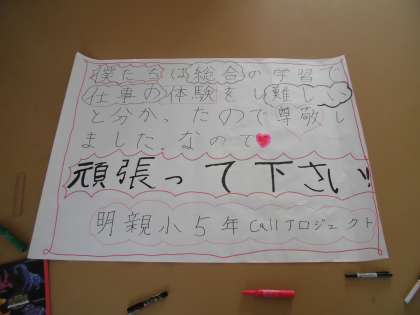 僕たちは総合の学習で
仕事の体験をし難しい
と分かったので尊敬し
ました。なので
頑張って下さい!!
明親小5年Callプロジェクト